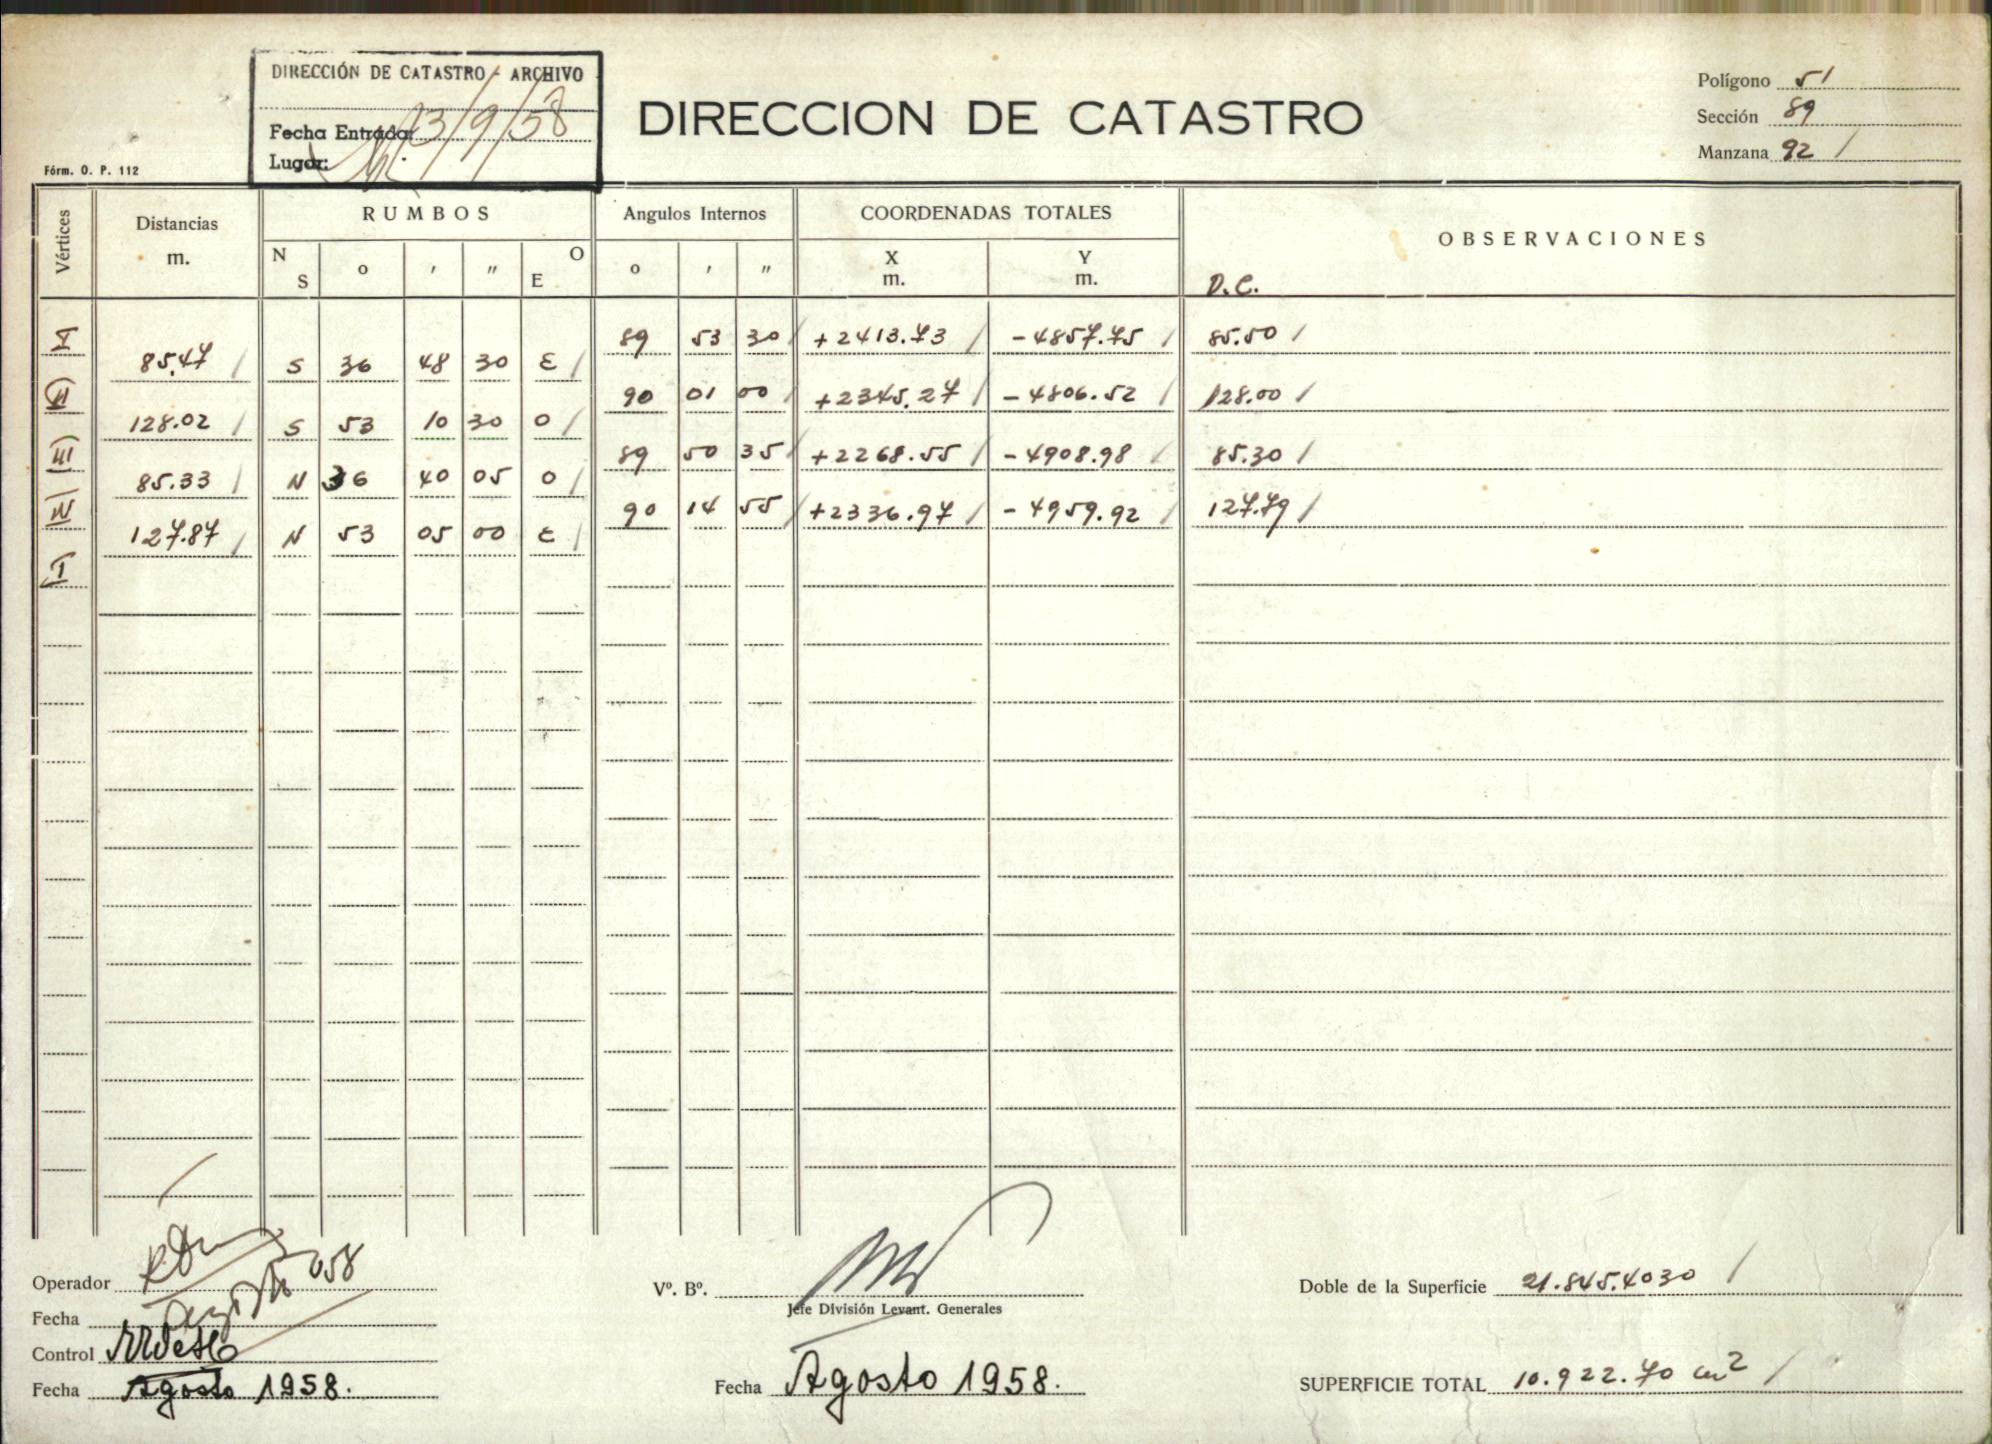 DIRECCIÓN DE CATASTRO - ARCHIVO
Fecha Entrada: 23/9/58
Lugar:
DIRECCION DE CATASTRO
Polígono 51
Sección 89
Manzana 92 /
Fórm. O. P. 112
Vértices Distancias m. RUMBOS Angulos Internos COORDENADAS TOTALES OBSERVACIONES
N S o ' " O E o ' " X m. Y m. D.C.
I 89 53 30 / +2413.73 / -4857.75 / 85.50 /
85.47 / S 36 48 30 E /
II 90 01 00 / +2345.27 / -4806.52 / 128.00 /
128.02 / S 53 10 30 O /
III 89 50 35 / +2268.55 / -4908.98 / 85.30 /
85.33 / N 36 40 05 O /
IV 90 14 55 / +2336.97 / -4959.92 / 127.79 /
127.87 / N 53 05 00 E /
I
Operador
Fecha Agosto 958
Control
Fecha Agosto 1958.
Vº. Bº.
Jefe División Levant. Generales
Fecha Agosto 1958.
Doble de la Superficie 21.845.4030 /
SUPERFICIE TOTAL 10.922.70 m2 /